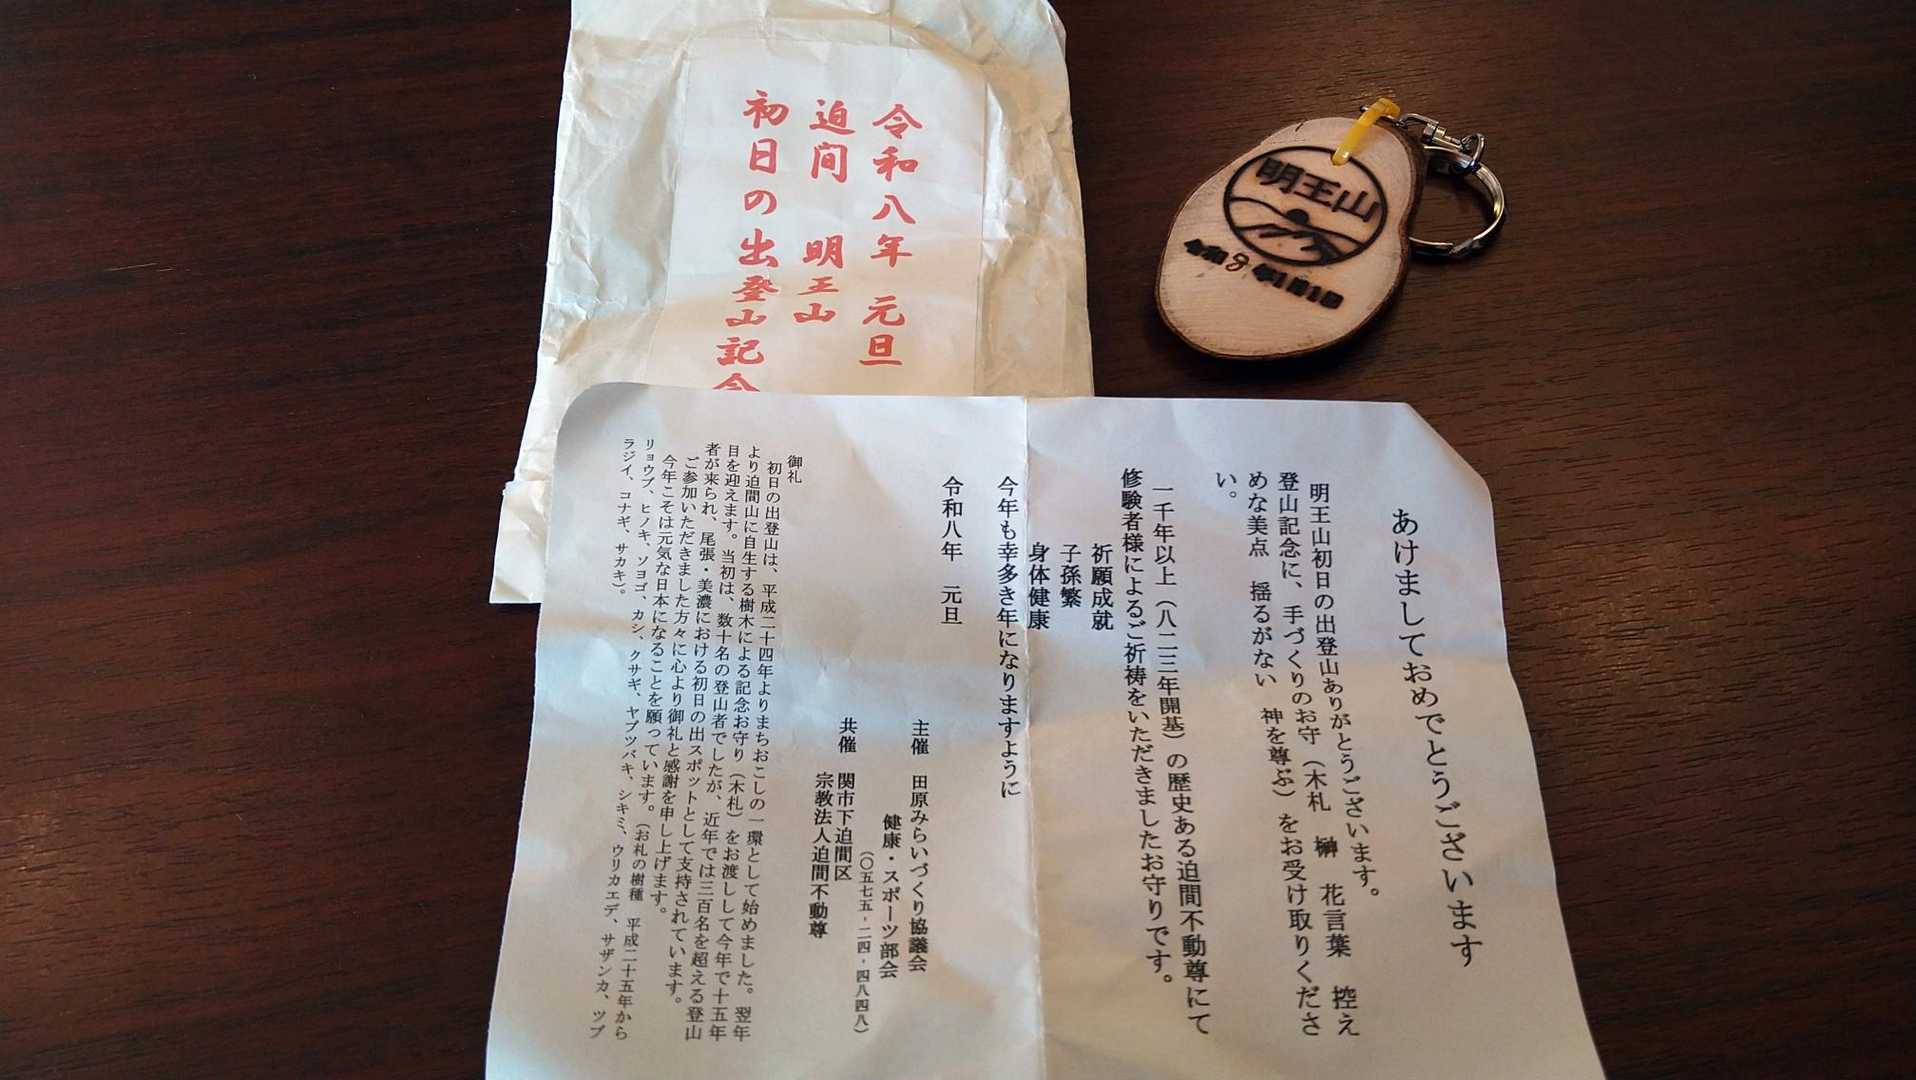 令和八年 元旦
迫間 明王山
初日の出登山記念
明王山
令和8年1月1日
あけましておめでとうございます
明王山初日の出登山ありがとうございます。
登山記念に、手づくりのお守（木札 榊 花言葉 控え
めな美点 揺るがない 神を尊ぶ）をお受け取りくださ
い。
一千年以上（八二三年開基）の歴史ある迫間不動尊にて
修験者様によるご祈祷をいただきましたお守りです。
祈願成就
子孫繁
身体健康
今年も幸多き年になりますように
令和八年 元旦
主催 田原みらいづくり協議会
健康・スポーツ部会
（〇五七五‐二四‐四八四八）
共催 関市下迫間区
宗教法人迫間不動尊
御礼
初日の出登山は、平成二十四年よりまちおこしの一環として始めました。翌年
より迫間山に自生する樹木による記念お守り（木札）をお渡しして今年で十五年
目を迎えます。当初は、数十名の登山者でしたが、近年では三百名を超える登山
者が来られ、尾張・美濃における初日の出スポットとして支持されています。
ご参加いただきました方々に心より御礼と感謝を申し上げます。
今年こそは元気な日本になることを願っています。（お札の樹種 平成二十五年から
リョウブ、ヒノキ、ソヨゴ、カシ、クサギ、ヤブツバキ、シキミ、ウリカエデ、サザンカ、ツブ
ラジイ、コナギ、サカキ）。